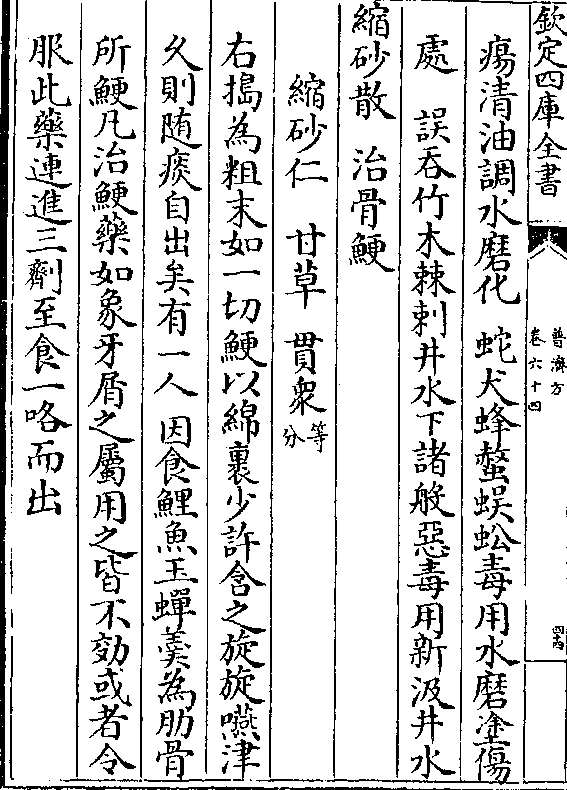 欽定四庫全書
普濟方
卷六十四
瘍清油調水磨化　蛇犬蜂螫蜈蚣毒用水磨塗傷
處　誤吞竹木棘刺井水下諸般惡毒用新汲井水
縮砂散　治骨鯁
縮砂仁　甘草　貫衆等分
右搗為粗末如一切鯁以綿裹少許含之旋旋嚥津
久則随痰自出矣有一人因食鯉魚玉蟬羹為肋骨
所鯁凡治鯁藥如象牙屑之屬用之皆不効或者令
服此藥連進三劑至食一咯而出